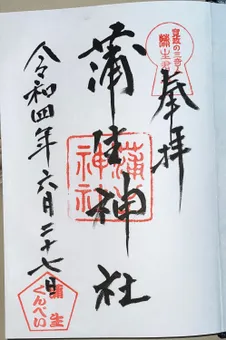 奉拝
蒲生神社
蒲生神社
令和四年六月二十七日
蒲生
くんぺい